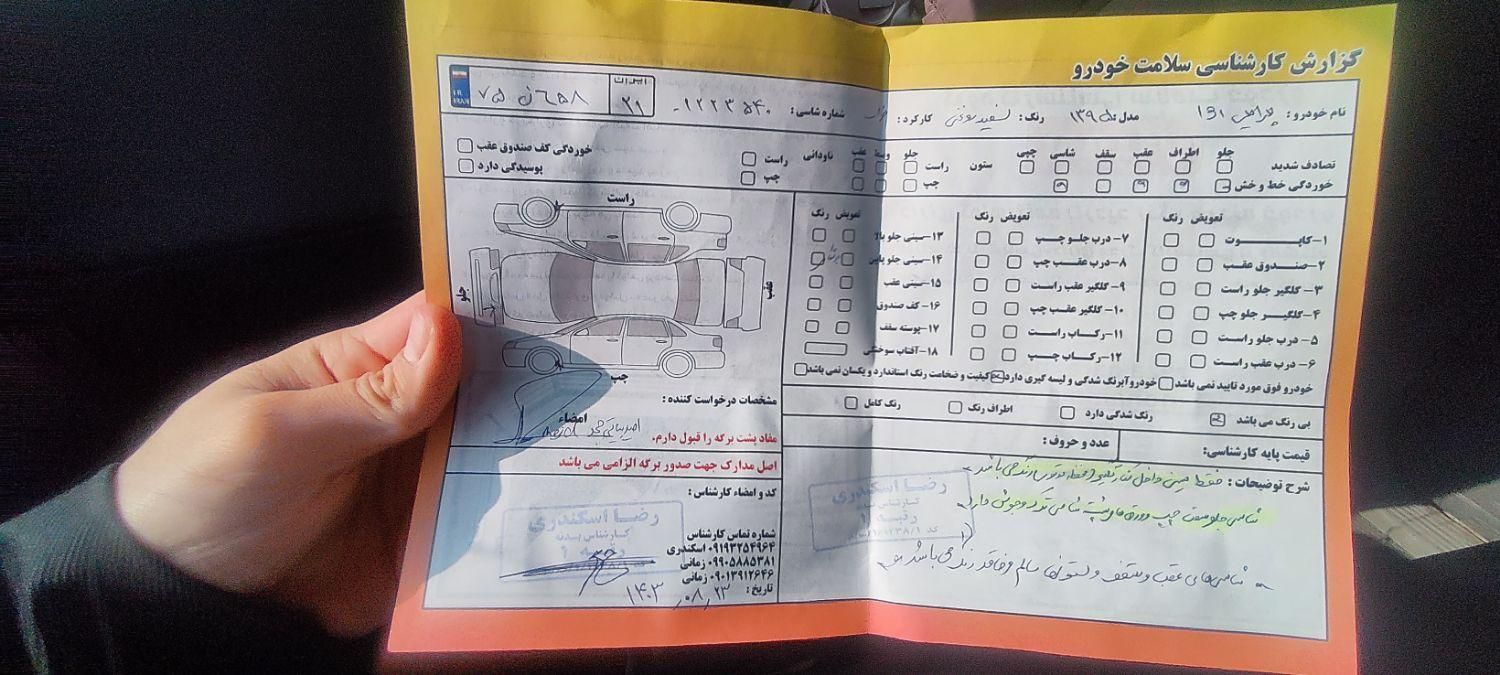 گزارش کارشناسی سلامت خودرو
نام خودرو : پراید 131 مدل: ۱۳۹۵ رنگ: سفید روغنی کارکرد: شماره شاسی: ۱۲۲۳۵۴۰
ایران
۲۱
I R
IRAN
جلو اطراف عقب سقف شاسی چپی
تصادف شدید
خوردگی خط و خش
ستون
جلو وسط عقب
راست
چپ
ناودانی
راست
چپ
خوردگی کف صندوق عقب
پوسیدگی دارد
تعویض رنگ
۱- کاپوت
۲- صندوق عقب
۳- گلگیر جلو راست
۴- گلگیر جلو چپ
۵- درب جلو راست
۶- درب عقب راست
تعویض رنگ
۷- درب جلو چپ
۸- درب عقب چپ
۹- گلگیر عقب راست
۱۰- گلگیر عقب چپ
۱۱- رکاب راست
۱۲- رکاب چپ
تعویض رنگ
۱۳- سینی جلو بالا
۱۴- سینی جلو پایین
۱۵- سینی عقب
۱۶- کف صندوق
۱۷- پوسته سقف
۱۸- آفتاب سوختگی
خودرو فوق مورد تایید نمی باشد خودرو آبرنگ شدگی و لیسه گیری دارد کیفیت و ضخامت رنگ استاندارد و یکسان نمی باشد
بی رنگ می باشد رنگ شدگی دارد اطراف رنگ رنگ کامل
قیمت پایه کارشناسی: عدد و حروف :
شرح توضیحات : فقط سینی داخل رنگ می باشد
شاسی جلو سمت چپ دارد
شاسی های عقب و سقف و ستونها سالم و فاقد رنگ می باشد
راست
جلو
عقب
چپ
مشخصات درخواست کننده :
امضاء
مفاد پشت برگه را قبول دارم.
اصل مدارک جهت صدور برگه الزامی می باشد
کد و امضاء کارشناس :
رضا اسکندری
کارشناس بدنه
رتبه ۱
رضا اسکندری
کارشناس بدنه
رتبه ۱
شماره تماس کارشناس
۰۹۱۹۳۲۵۴۹۶۴ اسکندری
۰۹۹۰۵۸۸۵۳۸۱ زمانی
۰۹۰۱۳۹۱۲۶۴۶ زمانی
تاریخ : ۱۴۰۳/۰۸/۲۳